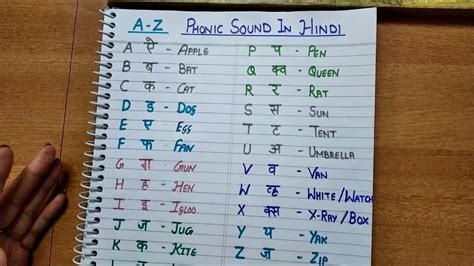 A-Z Phonic Sound In Hindi
A ऐ - Apple
B ब - Bat
C क - Cat
D ड - Dog
E ए - Egg
F फ - Fan
G ग - Gun
H ह - Hen
I इ - Igloo
J ज - Jug
K क - Kite
P प - Pen
Q क्व - Queen
R र - Rat
S स - Sun
T ट - Tent
U अ - Umbrella
V व - Van
W व्ह - White/Watch
X क्स - X-Ray/Box
Y य - Yak
Z ज़ - Zip